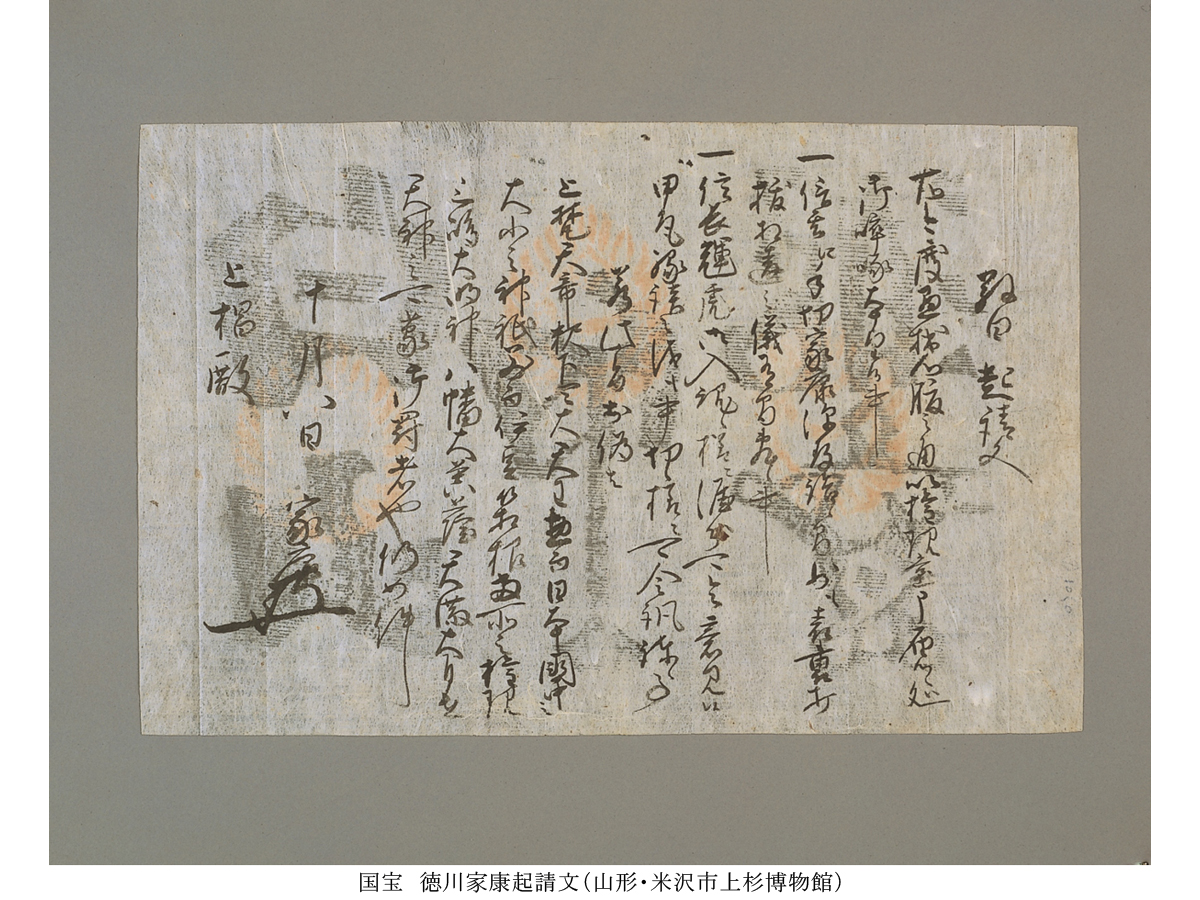 敬白 起請文
右今度愚拙心腹之通以権現堂申届候処
御啐啄本望候事
一信玄江手切家康深存詰候間少も表裏打
抜相違之儀有間敷候事
一信長輝虎御入魂候様ニ涯分可令意見候
甲尾縁談之儀も事切候様ニ可令諷諫候事
若此旨於偽者
上梵天帝釈下四大天王惣而日本国中之
大小之神祇別而伊豆箱根両所之権現
三嶋大明神八幡大菩薩天満大自在
天神之可蒙御罰者也仍如件
十月八日 家康
上椙殿
国宝 徳川家康起請文(山形・米沢市上杉博物館)